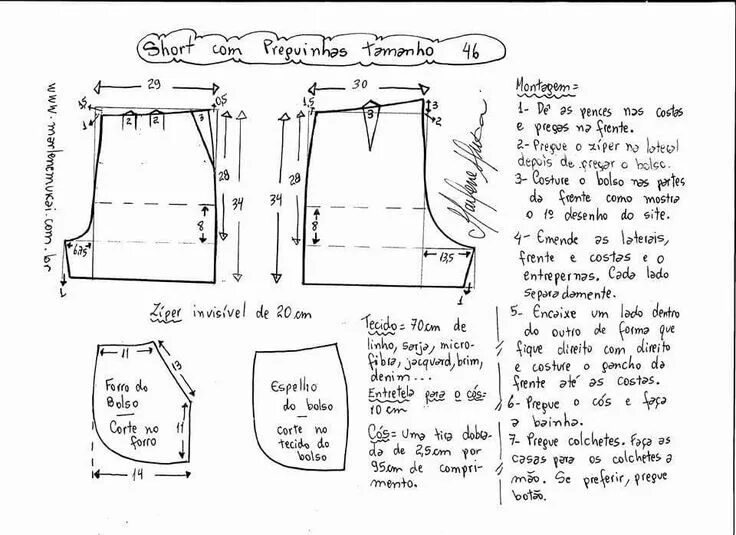 Short com Preguinhas tamanho 46
www.marlenemukai.com.br
29
1,5
0,5
1
2
2
3
28
34
8
6,75
1
30
1,5
3
3
2
28
34
8
13,5
1
Marlene Mukai
Zíper invisível de 20cm
11
13
Forro do
Bolso
Corte no
forro
11
14
Espelho
do bolso
corte no
tecido do
bolso
Tecido = 70cm de
linho, sarja, micro-
fibra, jacquard, brim,
denim...
Entretela para o cós =
10 cm
Cós = Uma tira dobra-
da de 2,5cm por
95cm de compri-
mento.
Montagem =
1- Dê as pences nas costas
e pregas na frente.
2- Pregue o zíper na lateral
depois de pregar o bolso.
3- Costure o bolso nas partes
da frente como mostra
o 1º desenho do site.
4- Emende as laterais,
frente e costas e o
entrepernas. Cada lado
separadamente.
5- Encaixe um lado dentro
do outro de forma que
fique direito com direito
e costure o gancho da
frente até as costas.
6- Pregue o cós e faça
a bainha.
7- Pregue colchetes. Faça as
casas para os colchetes a
mão. Se preferir, pregue
botão.